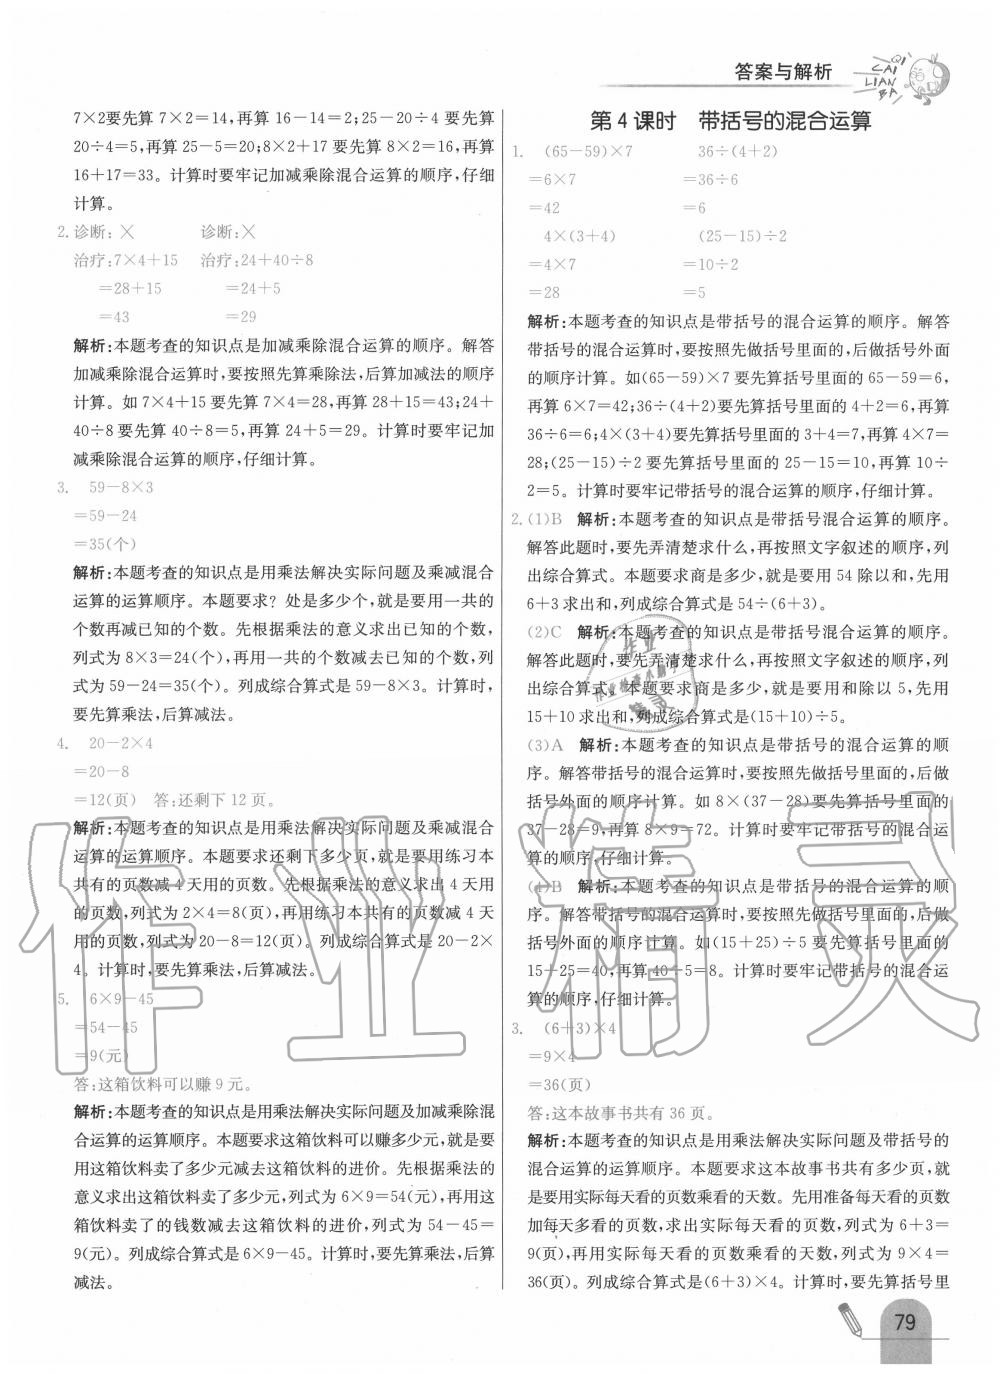 答案与解析
QI
CAI
LIAN
BA
7×2要先算 7×2=14,再算 16-14=2;25-20÷4 要先算
20÷4=5,再算 25-5=20;8×2+17 要先算 8×2=16,再算
16+17=33。计算时要牢记加减乘除混合运算的顺序,仔细
计算。
2. 诊断:╳ 诊断:╳
治疗:7×4+15 治疗:24+40÷8
=28+15 =24+5
=43 =29
解析:本题考查的知识点是加减乘除混合运算的顺序。解答
加减乘除混合运算时,要按照先算乘除法,后算加减法的顺序
计算。如 7×4+15 要先算 7×4=28,再算 28+15=43;24+
40÷8 要先算 40÷8=5,再算 24+5=29。计算时要牢记加
减乘除混合运算的顺序,仔细计算。
3. 59-8×3
=59-24
=35(个)
解析:本题考查的知识点是用乘法解决实际问题及乘减混合
运算的运算顺序。本题要求? 处是多少个,就是要用一共的
个数再减已知的个数。先根据乘法的意义求出已知的个数,
列式为 8×3=24(个),再用一共的个数减去已知的个数,列
式为 59-24=35(个)。列成综合算式是 59-8×3。计算时,
要先算乘法,后算减法。
4. 20-2×4
=20-8
=12(页) 答:还剩下 12 页。
解析:本题考查的知识点是用乘法解决实际问题及乘减混合
运算的运算顺序。本题要求还剩下多少页,就是要用练习本
共有的页数减 4 天用的页数。先根据乘法的意义求出 4 天用
的页数,列式为 2×4=8(页),再用练习本共有的页数减 4 天
用的页数,列式为 20-8=12(页)。列成综合算式是 20-2×
4。计算时,要先算乘法,后算减法。
5. 6×9-45
=54-45
=9(元)
答:这箱饮料可以赚 9 元。
解析:本题考查的知识点是用乘法解决实际问题及加减乘除混
合运算的运算顺序。本题要求这箱饮料可以赚多少元,就是要
用这箱饮料卖了多少元减去这箱饮料的进价。先根据乘法的
意义求出这箱饮料卖了多少元,列式为 6×9=54(元),再用这
箱饮料卖了的钱数减去这箱饮料的进价,列式为 54-45=
9(元)。列成综合算式是 6×9-45。计算时,要先算乘法,后算
减法。
第 4 课时 带括号的混合运算
1. (65-59)×7 36÷(4+2)
=6×7 =36÷6
=42 =6
4×(3+4) (25-15)÷2
=4×7 =10÷2
=28 =5
解析:本题考查的知识点是带括号的混合运算的顺序。解答
带括号的混合运算时,要按照先做括号里面的,后做括号外面
的顺序计算。如(65-59)×7 要先算括号里面的 65-59=6,
再算 6×7=42;36÷(4+2)要先算括号里面的 4+2=6,再算
36÷6=6;4×(3+4)要先算括号里面的 3+4=7,再算 4×7=
28;(25-15)÷2 要先算括号里面的 25-15=10,再算 10÷
2=5。计算时要牢记带括号的混合运算的顺序,仔细计算。
2. (1)B 解析:本题考查的知识点是带括号混合运算的顺序。
解答此题时,要先弄清楚求什么,再按照文字叙述的顺序,列
出综合算式。本题要求商是多少,就是要用 54 除以和,先用
6+3 求出和,列成综合算式是 54÷(6+3)。
(2)C 解析:本题考查的知识点是带括号混合运算的顺序。
解答此题时,要先弄清楚求什么,再按照文字叙述的顺序,列
出综合算式。本题要求商是多少,就是要用和除以 5,先用
15+10 求出和,列成综合算式是(15+10)÷5。
(3)A 解析:本题考查的知识点是带括号的混合运算的顺
序。解答带括号的混合运算时,要按照先做括号里面的,后做
括号外面的顺序计算。如 8×(37-28)要先算括号里面的
37-28=9,再算 8×9=72。计算时要牢记带括号的混合运
算的顺序,仔细计算。
(4)B 解析:本题考查的知识点是带括号的混合运算的顺
序。解答带括号的混合运算时,要按照先做括号里面的,后做
括号外面的顺序计算。如(15+25)÷5 要先算括号里面的
15+25=40,再算 40÷5=8。计算时要牢记带括号的混合运
算的顺序,仔细计算。
3. (6+3)×4
=9×4
=36(页)
答:这本故事书共有 36 页。
解析:本题考查的知识点是用乘法解决实际问题及带括号的
混合运算的运算顺序。本题要求这本故事书共有多少页,就
是要用实际每天看的页数乘看的天数。先用准备每天看的页数
加每天多看的页数,求出实际每天看的页数,列式为 6+3=
9(页),再用实际每天看的页数乘看的天数,列式为 9×4=
36(页)。列成综合算式是(6+3)×4。计算时,要先算括号里
79
作业精灵